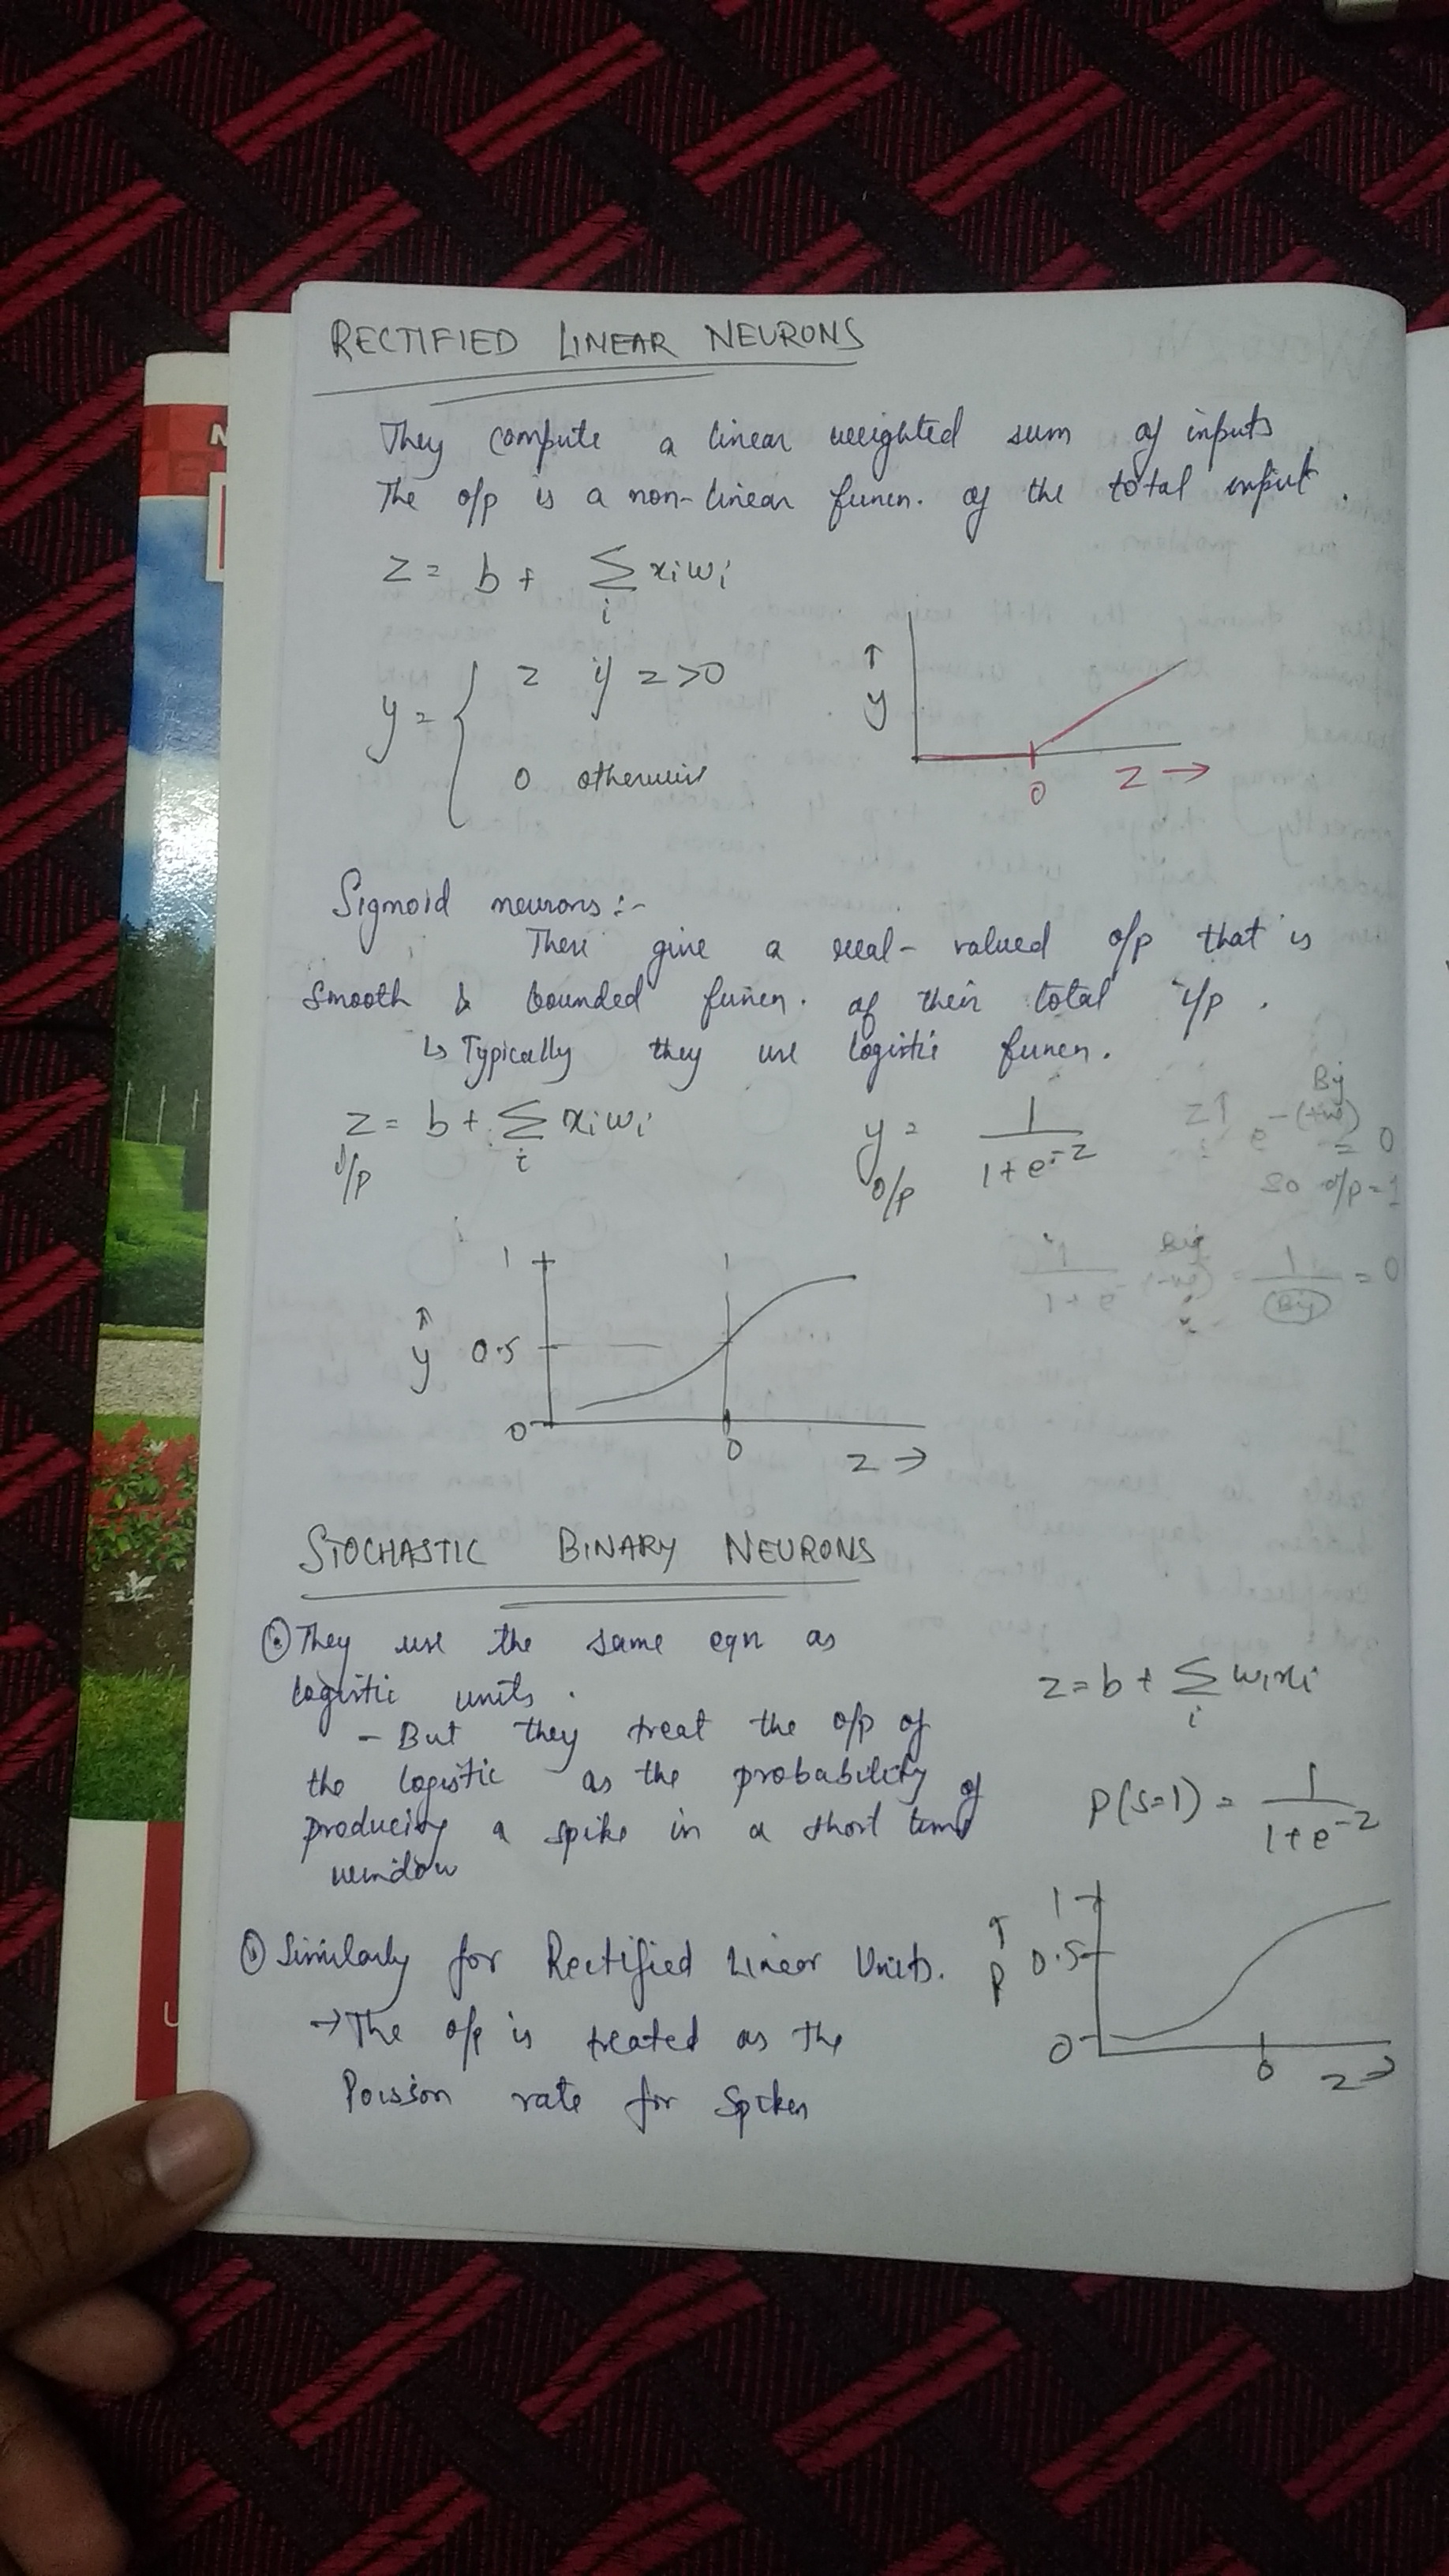 RECTIFIED LINEAR NEURONS
They compute a linear weighted sum of inputs
The o/p is a non-linear funcn. of the total input.
z = b + Σ xiwi
i
y = { z if z>0
0 otherwise
↑
y
0 z →
Sigmoid neurons :-
These give a real-valued o/p that is
smooth & bounded funcn. of their total i/p.
↳ Typically they use logistic funcn.
z = b + Σ xiwi
i
i/p
y = 1 / 1+e^-z
o/p
z↑ e^-(+ve) = 0
so o/p = 1
1 / 1+e^-(-ve) = 1 / = 0
1
↑
y 0.5
0
0 z →
STOCHASTIC BINARY NEURONS
They use the same eqn as
logistic units.
- But they treat the o/p of
the logistic as the probability of
producing a spike in a short time
window
z = b + Σ wixi
i
P(s=1) = 1 / 1+e^-z
Similarly for Rectified Linear Units.
→ The o/p is treated as the
Poission rate for Spikes
1
↑
P 0.5
0
0 z →